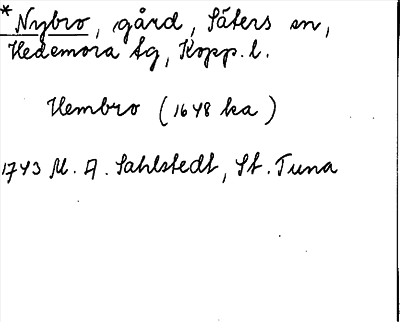 * Nybro, gård, Säters sn,
Hedemora tg, Kopp. l.
Hembro (1648 ka)
1743 M. A. Sahlstedt, St. Tuna